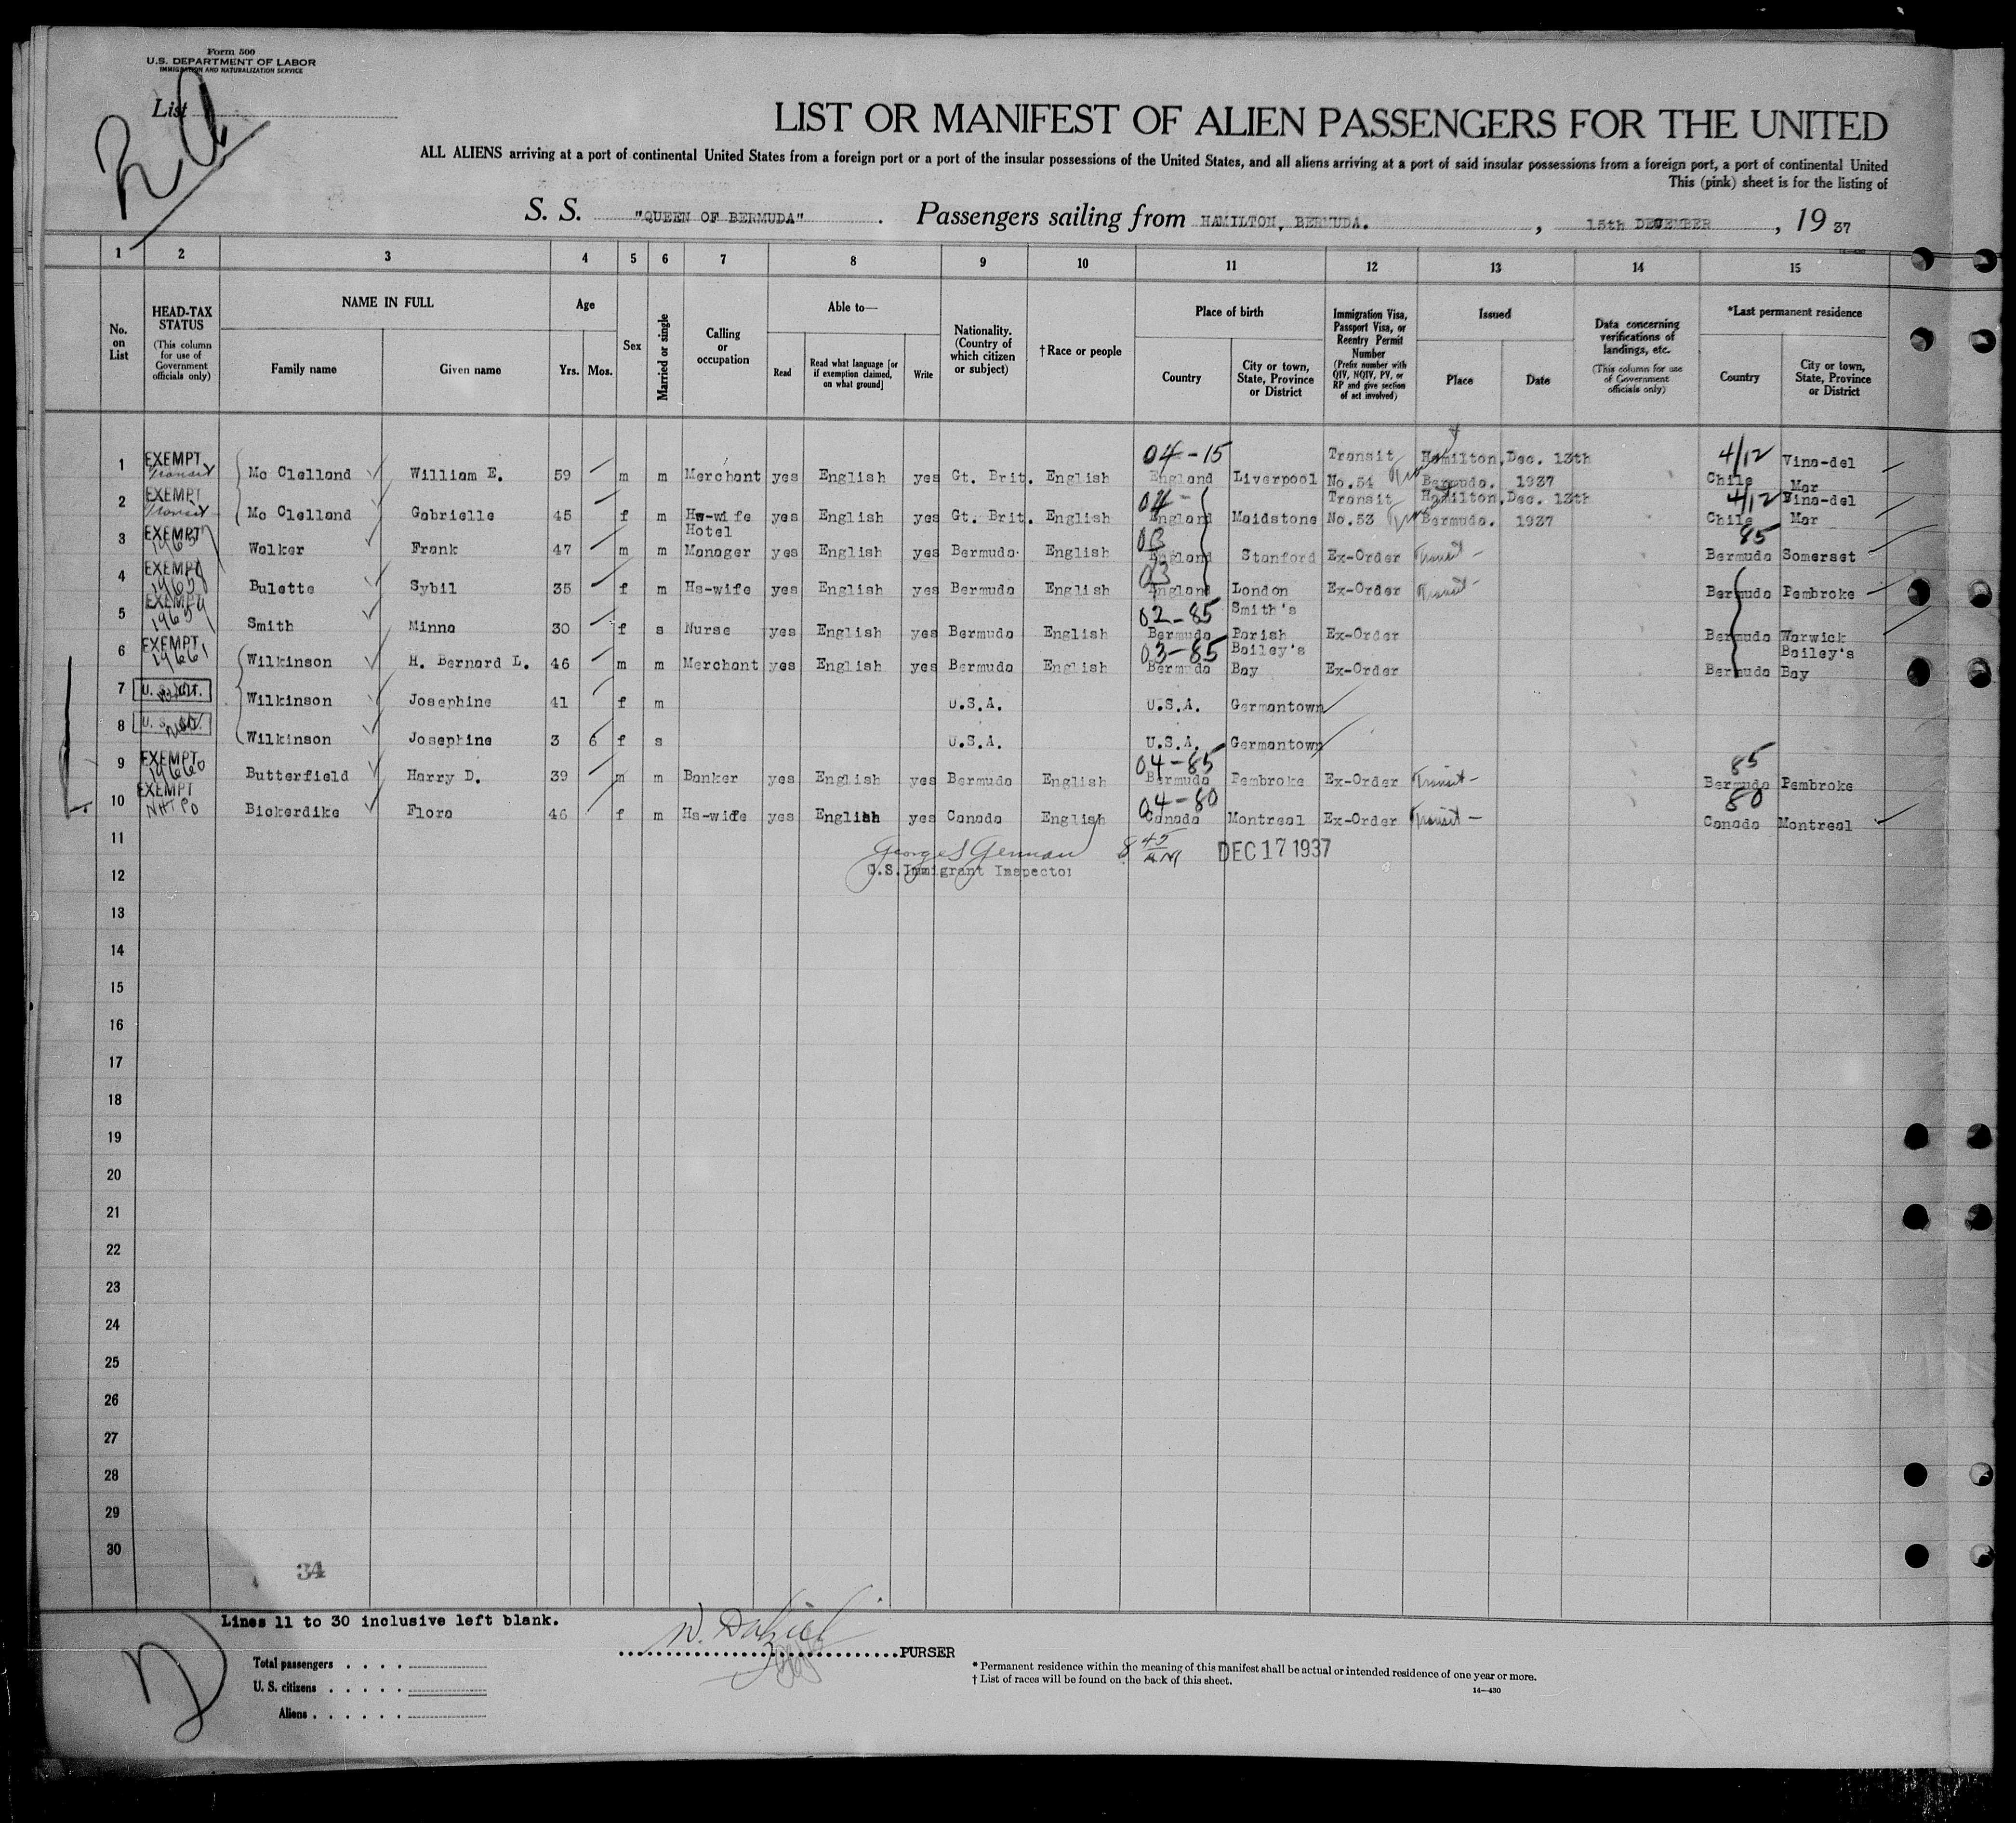 Form 500
U.S. DEPARTMENT OF LABOR
IMMIGRATION AND NATURALIZATION SERVICE
List
LIST OR MANIFEST OF ALIEN PASSENGERS FOR THE UNITED
ALL ALIENS arriving at a port of continental United States from a foreign port or a port of the insular possessions of the United States, and all aliens arriving at a port of said insular possessions from a foreign port, a port of continental United
This (pink) sheet is for the listing of
S. S. "QUEEN OF BERMUDA" . Passengers sailing from HAMILTON, BERMUDA. , 15th DECEMBER , 19 37
14-430
1 2 3 4 5 6 7 8 9 10 11 12 13 14 15
No. on List
HEAD-TAX STATUS (This column for use of Government officials only)
NAME IN FULL Family name Given name
Age Yrs. Mos.
Sex
Married or single
Calling or occupation
Able to— Read Read what language [or if exemption claimed, on what ground] Write
Nationality. (Country of which citizen or subject)
† Race or people
Place of birth Country City or town, State, Province or District
Immigration Visa, Passport Visa, or Reentry Permit Number (Prefix number with QIV, NQIV, PV, or RP and give section of act involved)
Issued Place Date
Data concerning verifications of landings, etc. (This column for use of Government officials only)
*Last permanent residence Country City or town, State, Province or District
04-15 Transit Hamilton, Dec. 13th 4/12 Vina-del
1 EXEMPT Transit Mc Clelland William E. 59 m m Merchant yes English yes Gt. Brit. English England Liverpool No.54 Bermuda. 1937 Chile Mar
04- Transit Hamilton, Dec. 13th 4/12 Vina-del
2 EXEMPT Transit Mc Clelland Gabrielle 45 f m Hs-wife yes English yes Gt. Brit. English England Maidstone No.53 Bermuda. 1937 Chile Mar
Hotel 03 85
3 EXEMPT Walker Frank 47 m m Manager yes English yes Bermuda. English England Stanford Ex-Order Transit- Bermuda Somerset
03
4 EXEMPT 19658 Bulette Sybil 35 f m Hs-wife yes English yes Bermuda English England London Ex-Order Transit- Bermuda Pembroke
02-85 Smith's
5 EXEMPT 19659 Smith Minna 30 f s Nurse yes English yes Bermuda English Bermuda Parish Ex-Order Bermuda Warwick
03-85 Bailey's Bailey's
6 EXEMPT 19661 Wilkinson H. Bernard L. 46 m m Merchant yes English yes Bermuda English Bermuda Bay Ex-Order Bermuda Bay
7 Wilkinson Josephine 41 f m U.S.A. U.S.A. Germantown
8 Wilkinson Josephine 3 6 f s U.S.A. U.S.A. Germantown
04-85 85
9 EXEMPT 19660 Butterfield Harry D. 39 m m Banker yes English yes Bermuda English Bermuda Pembroke Ex-Order Transit- Bermuda Pembroke
04-80 80
10 EXEMPT Bickerdike Flora 46 f m Hs-wife yes English yes Canada English Canada Montreal Ex-Order Transit- Canada Montreal
11 George S German 8 45 AM DEC 17 1937
U.S. Immigrant Inspector
12
13
14
15
16
17
18
19
20
21
22
23
24
25
26
27
28
29
30
34
Lines 11 to 30 inclusive left blank.
PURSER
Total passengers . . . .
U. S. citizens . . . . .
Aliens . . . . . .
* Permanent residence within the meaning of this manifest shall be actual or intended residence of one year or more.
† List of races will be found on the back of this sheet.
14-430